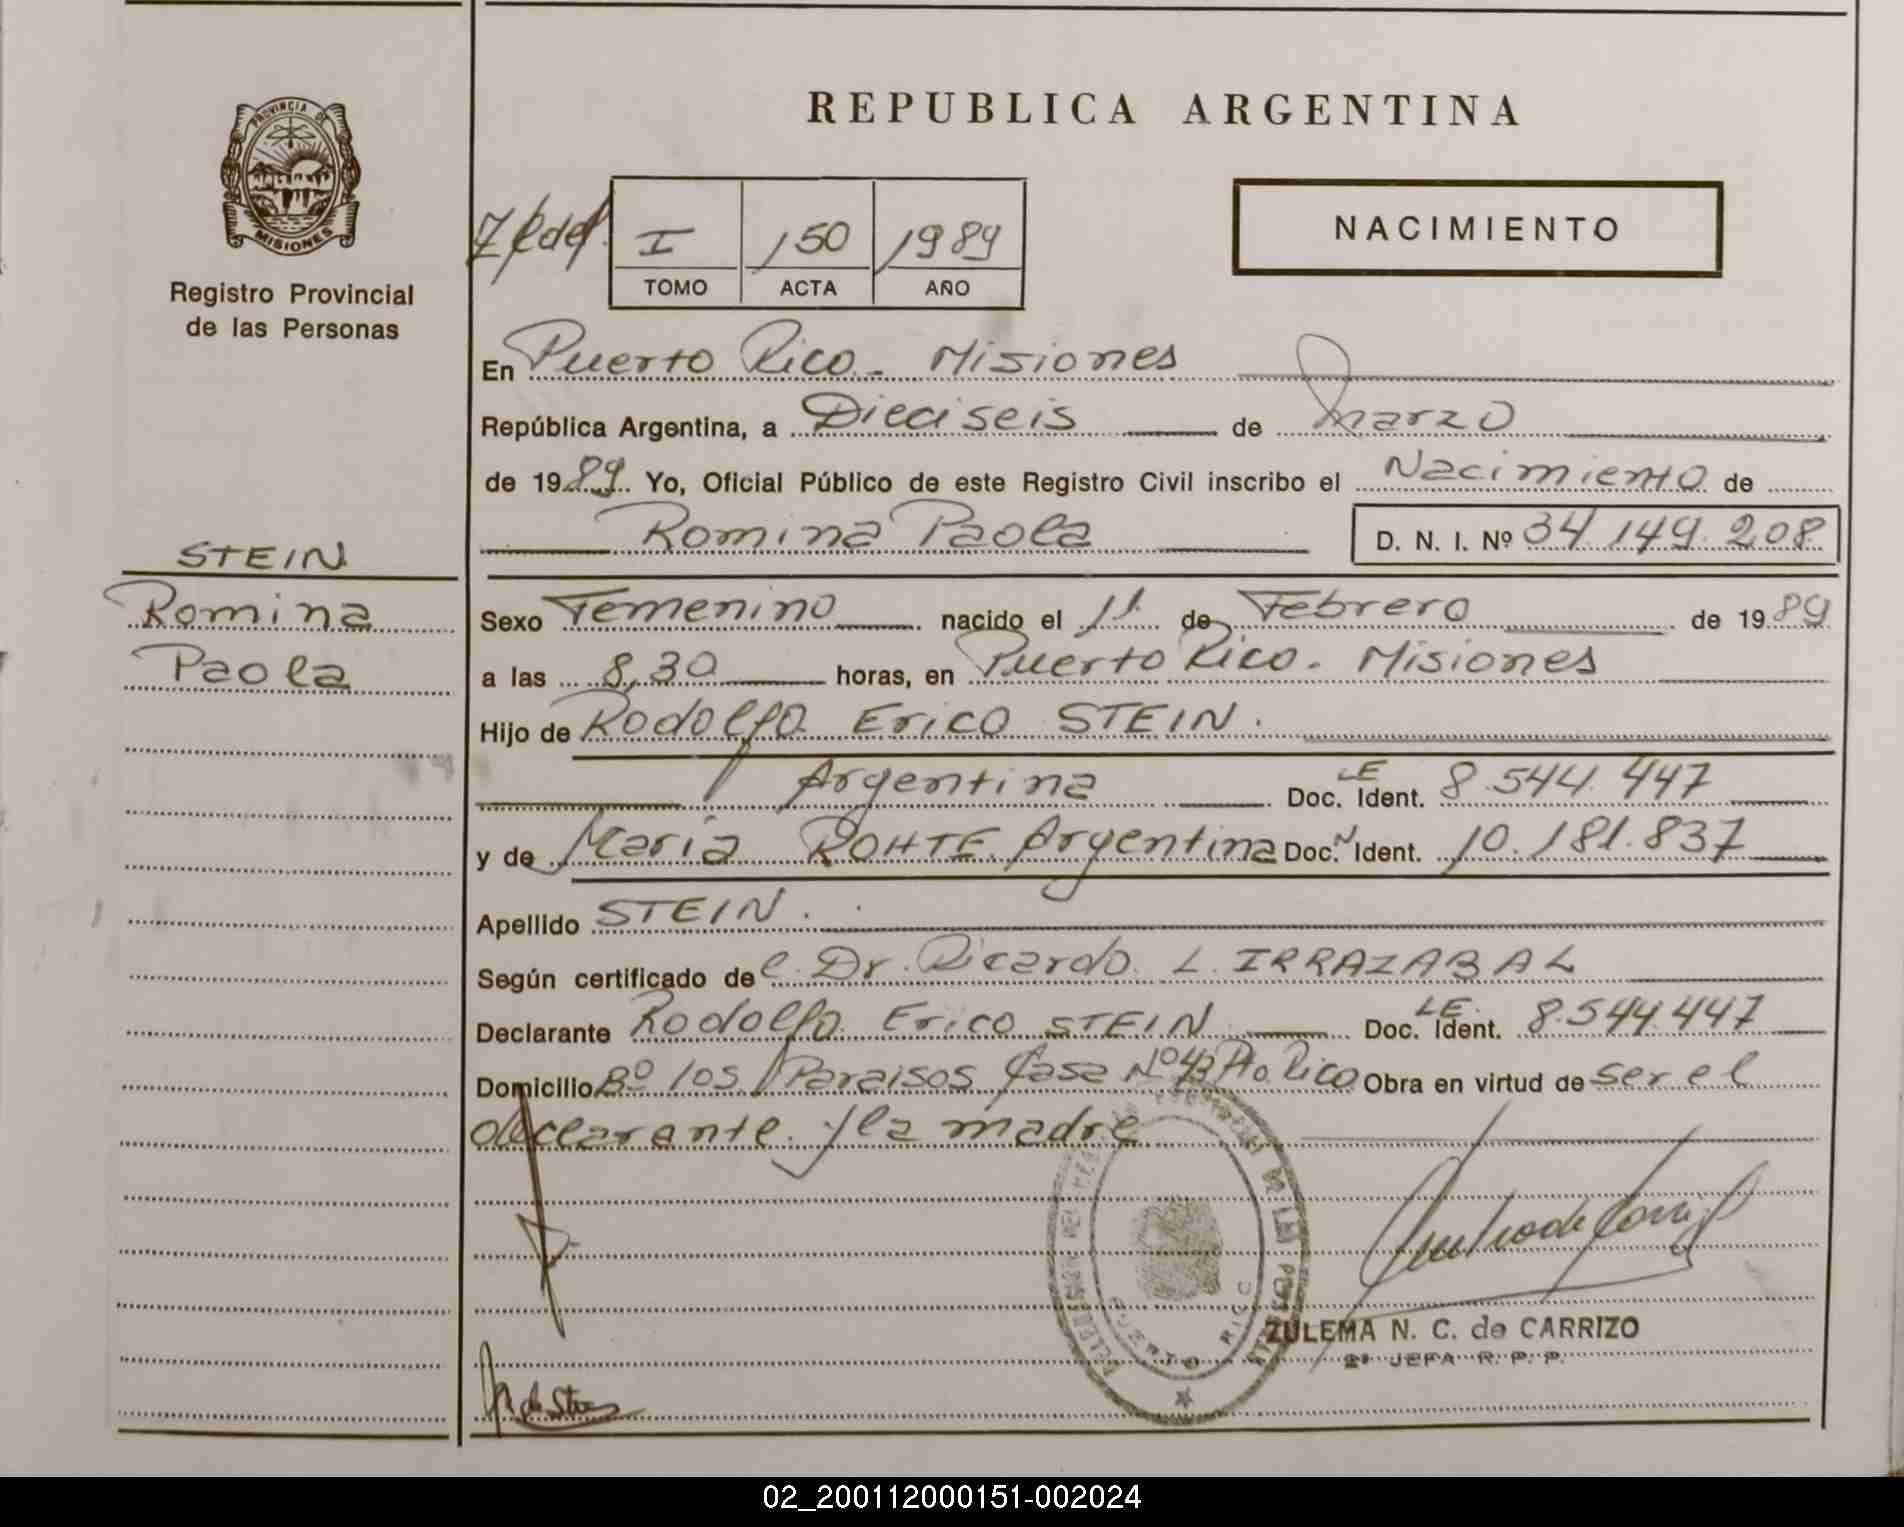 PROVINCIA DE
MISIONES
Registro Provincial
de las Personas
STEIN
Romina
Paola
REPUBLICA ARGENTINA
I 150 1989
TOMO ACTA AÑO
NACIMIENTO
En Puerto Rico - Misiones
República Argentina, a Dieciseis de Marzo
de 1989 Yo, Oficial Público de este Registro Civil inscribo el Nacimiento de
Romina Paola D. N. I. Nº 34.149.208
Sexo Femenino nacido el 11 de Febrero de 1989
a las 8,30 horas, en Puerto Rico. Misiones
Hijo de Rodolfo Erico STEIN.
Argentina Doc. Ident. LE 8.544.447
y de Maria ROHTE Argentina Doc. Ident. 10.181.837
Apellido STEIN.
Según certificado del Dr. Ricardo L. IRRAZABAL
Declarante Rodolfo Erico STEIN Doc. Ident. LE 8.544.447
Domicilio Bº los Paraisos Casa Nº 43 Pto. Rico Obra en virtud de ser el
declarante y la madre
PUERTO RICO
ZULEMA N. C. de CARRIZO
2ª JEFA R. P. P.
02_200112000151-002024